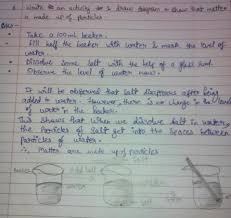 Write an activity & draw diagram to show that matter
is made up of particles.
Ans-
• Take a 100ml beaker.
• Fill half the beaker with water & mark the level of
water.
• Dissolve some salt with the help of a glass rod.
• Observe the level of water now.
It will be observed that salt disappears after being
added to water. However, there is no change in the level
of water in the beaker.
This shows that when we dissolve salt in water,
the particles of salt get into the spaces between
particles of water.
∴ Matter are made up of particles
salt